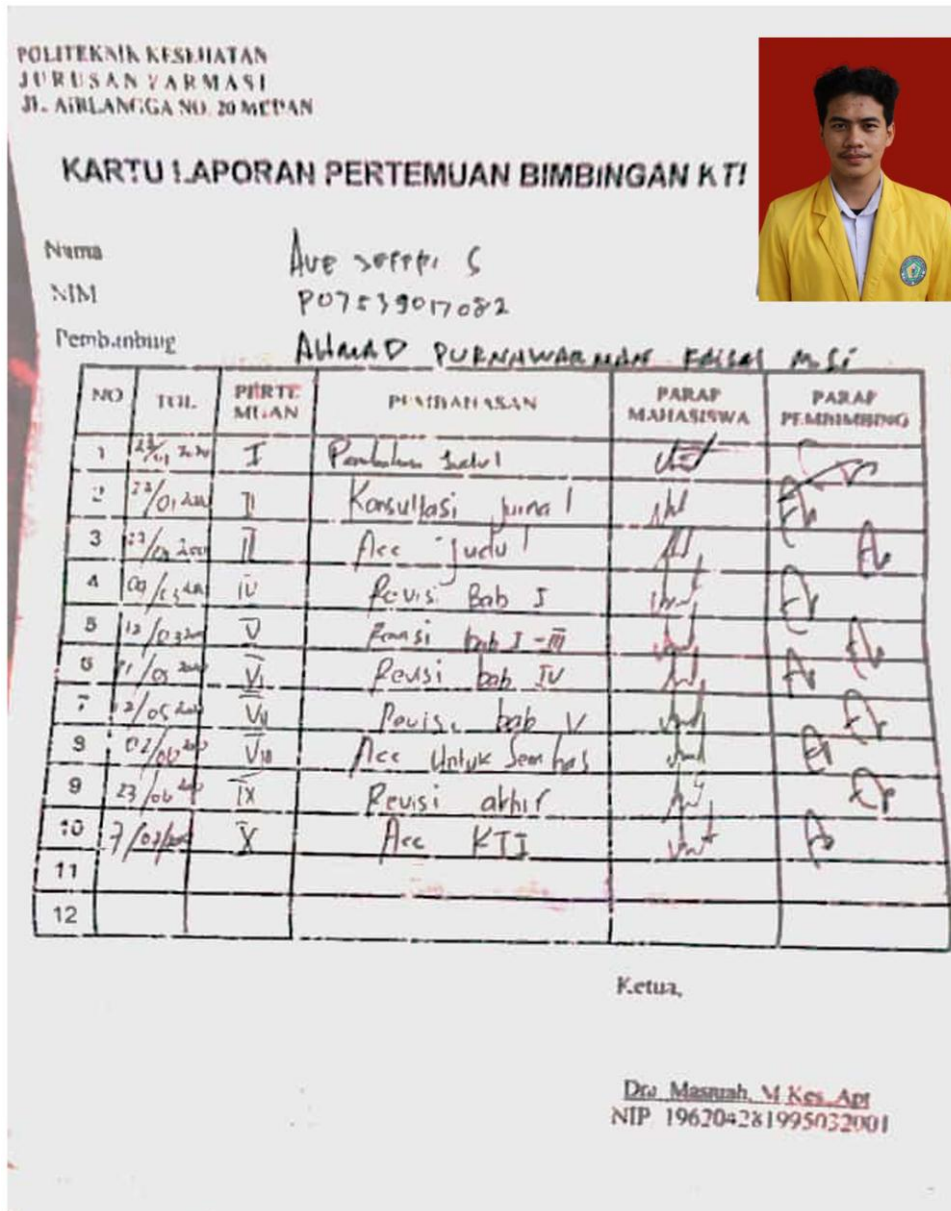 POLITEKNIK KESEHATAN
JURUSAN FARMASI
JL. AIRLANGGA NO. 20 MEDAN
KARTU LAPORAN PERTEMUAN BIMBINGAN KTI
Nama Ave S
NIM P07539017082
Pembimbing AHMAD PURNAWARMAN FAISAL M.Si
NO TGL. PERTE MUAN PEMBAHASAN PARAF MAHASISWA PARAF PEMBIMBING
1 I Judul
2 II Konsultasi jurnal
3 Acc judul
4 IV Revisi Bab I
5 V Revisi bab I - III
6 VI Revisi bab IV
7 VII Revisi bab V
8 VIII Acc Untuk Semhas
9 23/06 IX Revisi akhir
10 7/07 X Acc KTI
11
12
Ketua,
Dra. Masniah, M.Kes, Apt
NIP 196204281995032001